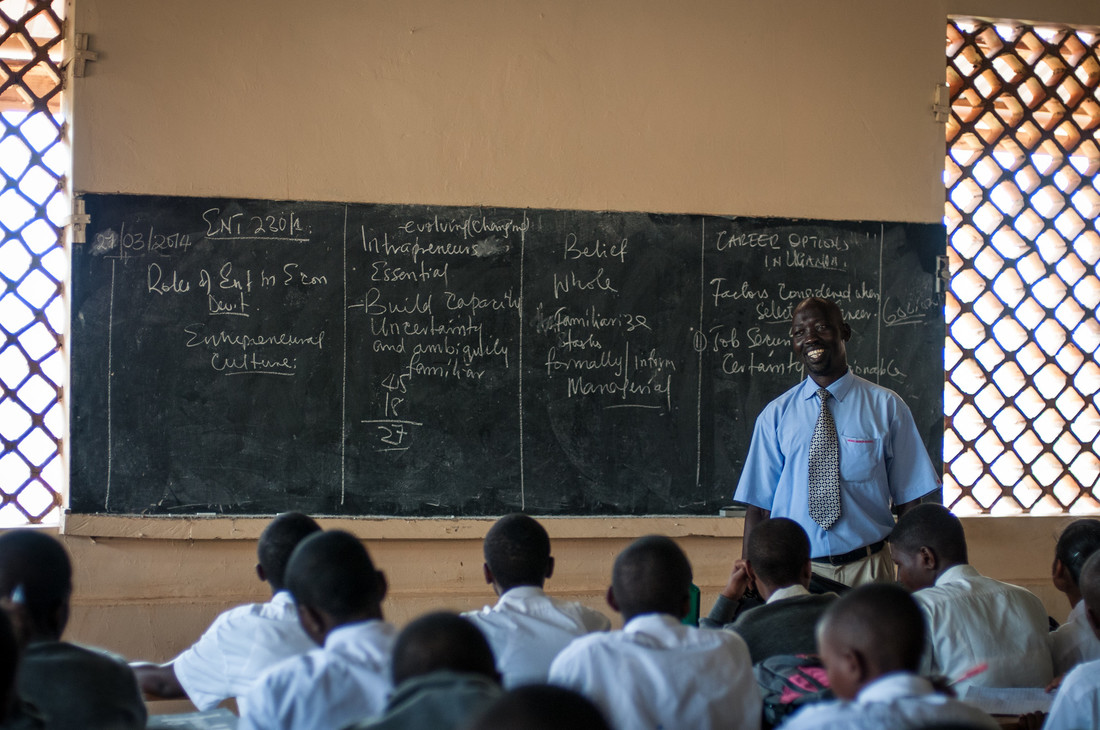 /03/2014
ENT 230/1.
Roles of Ent in Econ
Dev't
Entrepreneurial
Culture:
- evolving (Changing)
Intrapreneurs
Essential
- Build Capacity
Uncertainty
and ambiquily
familiar
45
18
27
Belief
Whole
Familiarize
tasks
formally/inform
Managerial
CAREER OPTIONS
IN UGANDA.
Factors considered when
① Job